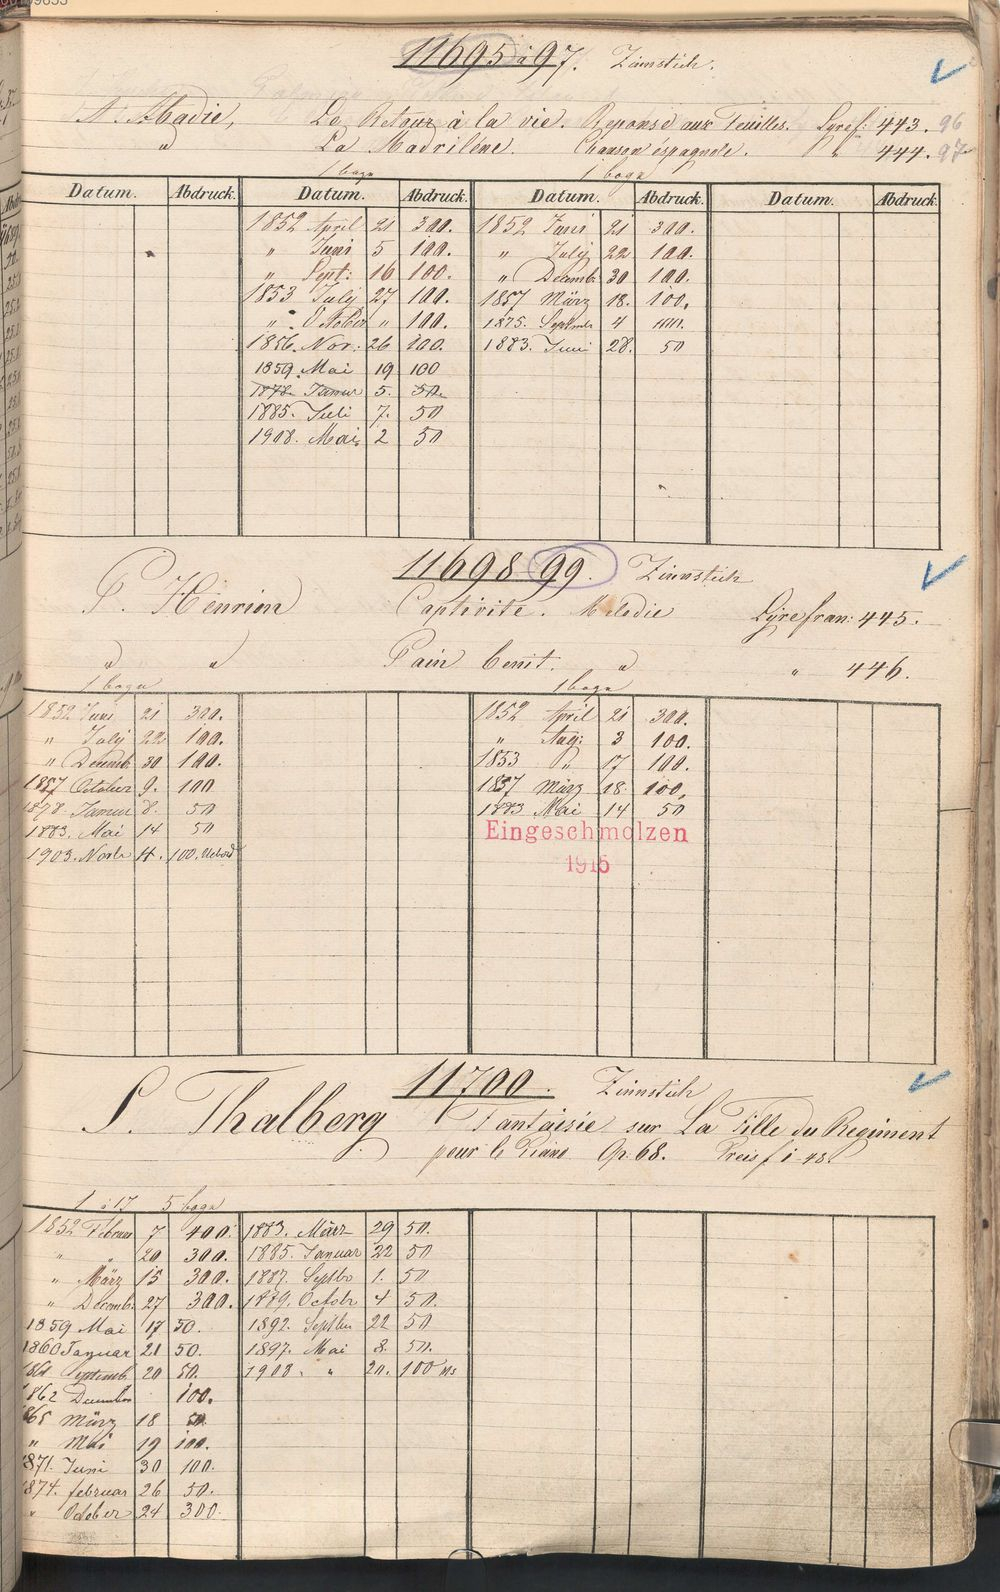 11695 à 97. Zinnstich.
A. Abadie, Le Retour à la vie. Reponse aux Feuilles. Lyre f: 443. 96
" La Madriléne. Chanson éspagnole. " 444. 97
1 bogn 1 bogn
Datum. Abdruck. Datum. Abdruck. Datum. Abdruck. Datum. Abdruck.
1852 April 21 300. 1852 Juni 21 300.
" Juni 5 100. " July 22 100.
" Sept: 16 100. " Decemb. 30 100.
1853 July 27 100. 1857 März 18. 100.
" October " 100. 1875. Septembr 4
1856. Nov: 26 100. 1883. Juni 28. 50
1859. Mai 19 100
1878. Januar 5. 50.
1885. Juli 7. 50
1908. Mai 2 50
11698 99. Zinnstich
P. Henrion Captivite. Melodie Lyre fran: 445.
" " Pain benit. " " 446.
1 bogn 1 bogn
1852 Juni 21 300. 1852 April 21 300.
" July 22 100. " Aug: 3 100.
" Decemb. 30 100. 1853 " 17 100.
1857 October 9. 100 1857 März 18. 100.
1878. Januar 8. 50 1883 Mai 14 50
1883. Mai 14 50 Eingeschmolzen
1903. Novbr 4. 100. 1915
11700. Zinnstich
S. Thalberg Fantaisie sur La Fille du Regiment
pour le Piano Op. 68. Preis f 1-48.
1 à 17 5 bogn
1852 Februar 7 400. 1883. März 29 50.
" " 20 300. 1885. Januar 22 50
" März 15 300. 1887. Septbr 1. 50
" Decemb. 27 300. 1889. Octobr 4 50.
1859 Mai 17 50. 1892. Septbr 22 50
1860 Januar 21 50. 1897. Mai 8. 50.
1861 Septemb. 20 50. 1908. " 20. 100
1862 December 100.
1865 März 18 50
" Mai 19 100.
1871. Juni 30 100.
1874. februar 26 50.
" October 24 300.